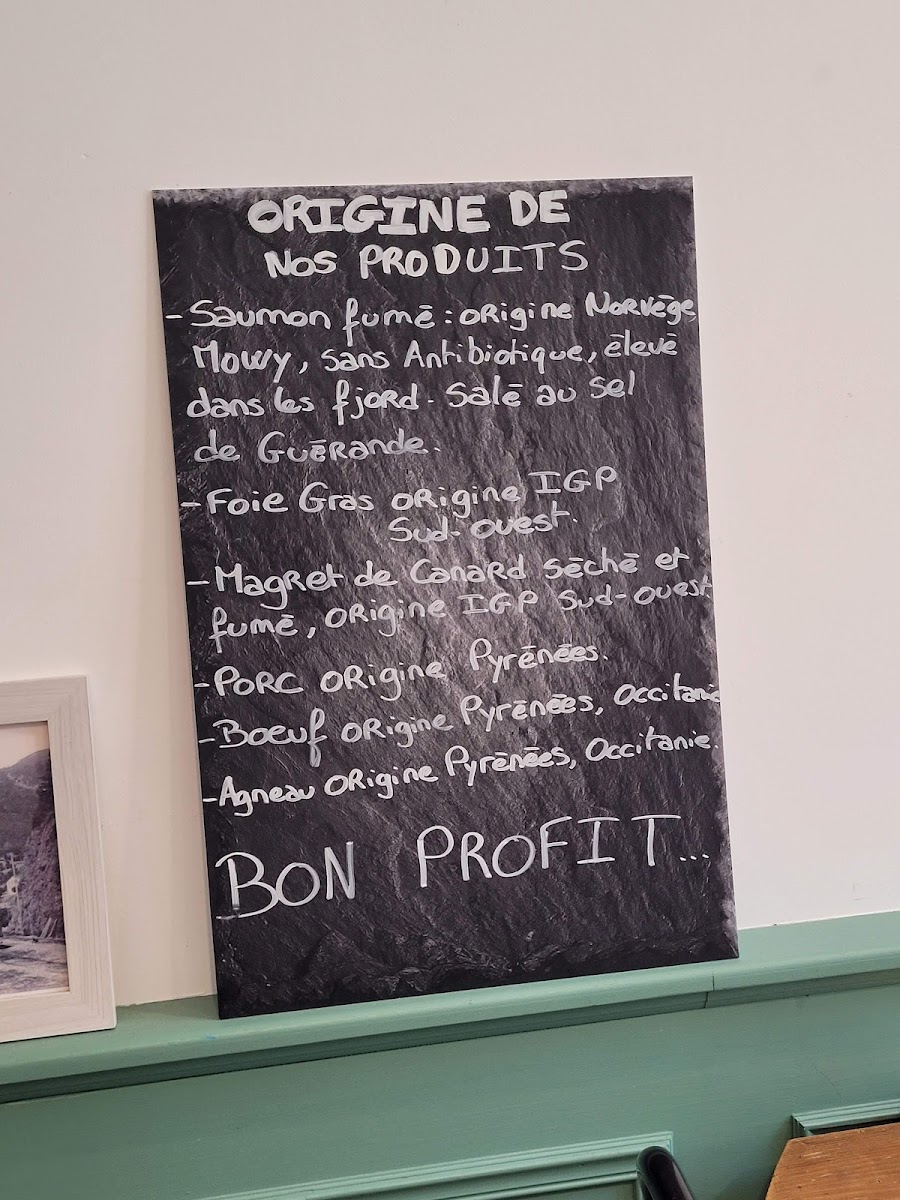 ORIGINE DE
NOS PRODUITS
- Saumon fumé : origine Norvège
Mowy, sans Antibiotique, élevé
dans les fjord. Salé au sel
de Guérande.
- Foie Gras origine IGP
Sud-ouest.
- Magret de Canard séché et
fumé, origine IGP Sud-ouest
- Porc origine Pyrénées.
- Boeuf origine Pyrénées, Occitanie
- Agneau origine Pyrénées, Occitanie.
BON PROFIT...